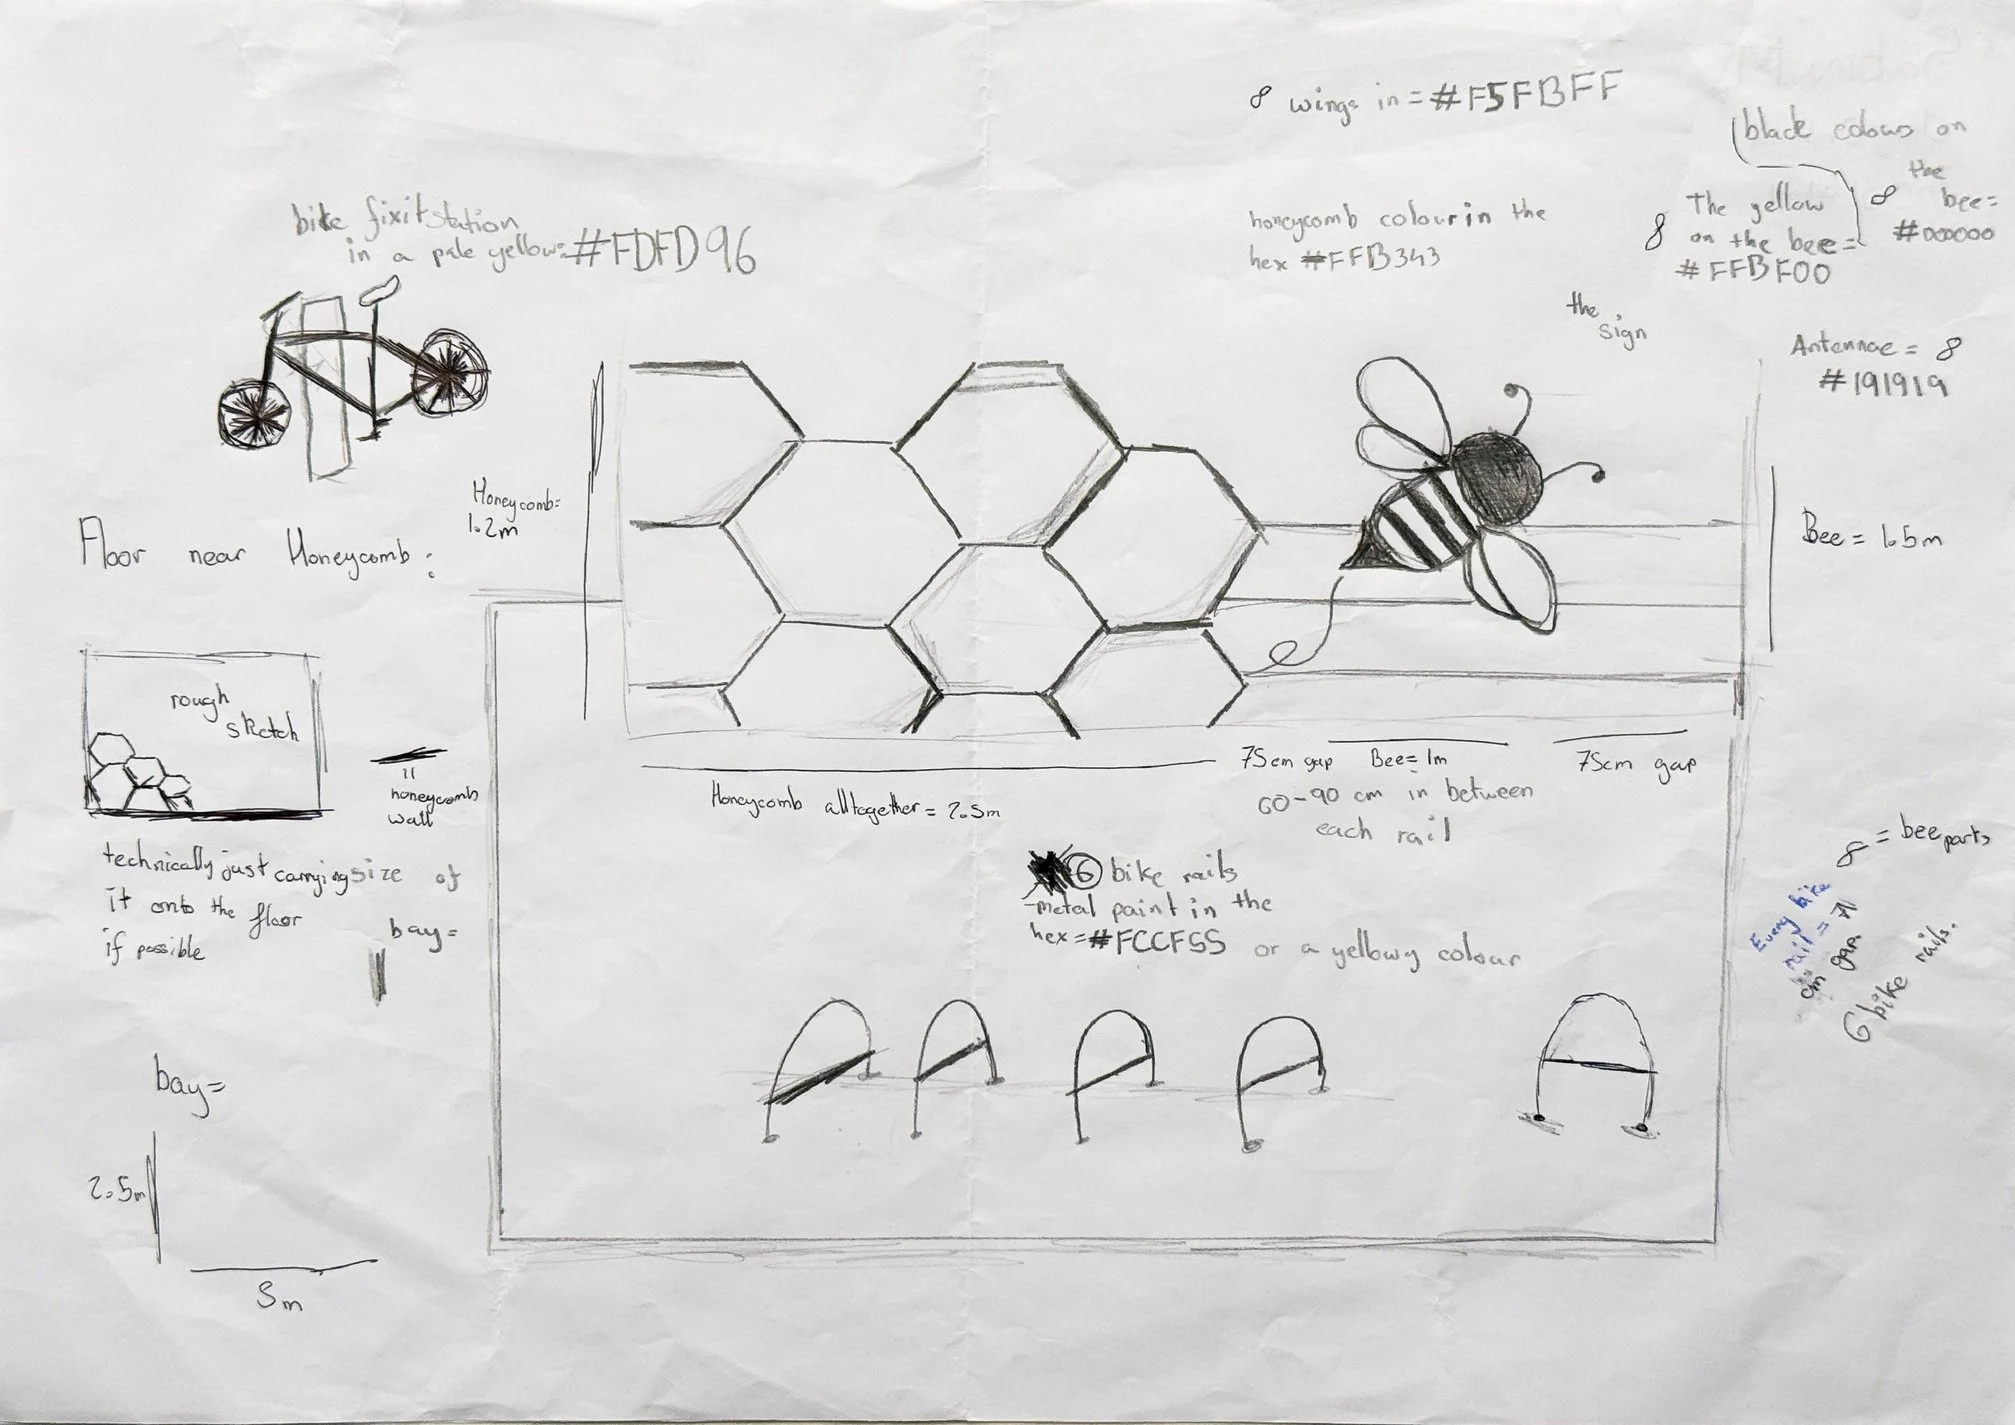 8 wings in = #F5FBFF
black colours on
the
8 bee =
#000000
bike fixit station
in a pale yellow: #FDFD96
honeycomb colour in the
hex #FFB343
8 The yellow
on the bee =
#FFBF00
the
sign
Antennae = 8
#191919
Honeycomb:
1.2m
Floor near Honeycomb:
Bee = 1.5m
rough
sketch
11
honeycomb
wall
75cm gap
Bee = 1m
75cm gap
Honeycomb alltogether = 2.5m
60-90 cm in between
each rail
technically just carrying size of
it onto the floor
if possible
bay =
6 bike rails
metal paint in the
hex = #FCCF55 or a yellowy colour
8 = bee parts
Every bike
rail =
cm gap
6 bike rails.
bay =
2.5m
5m